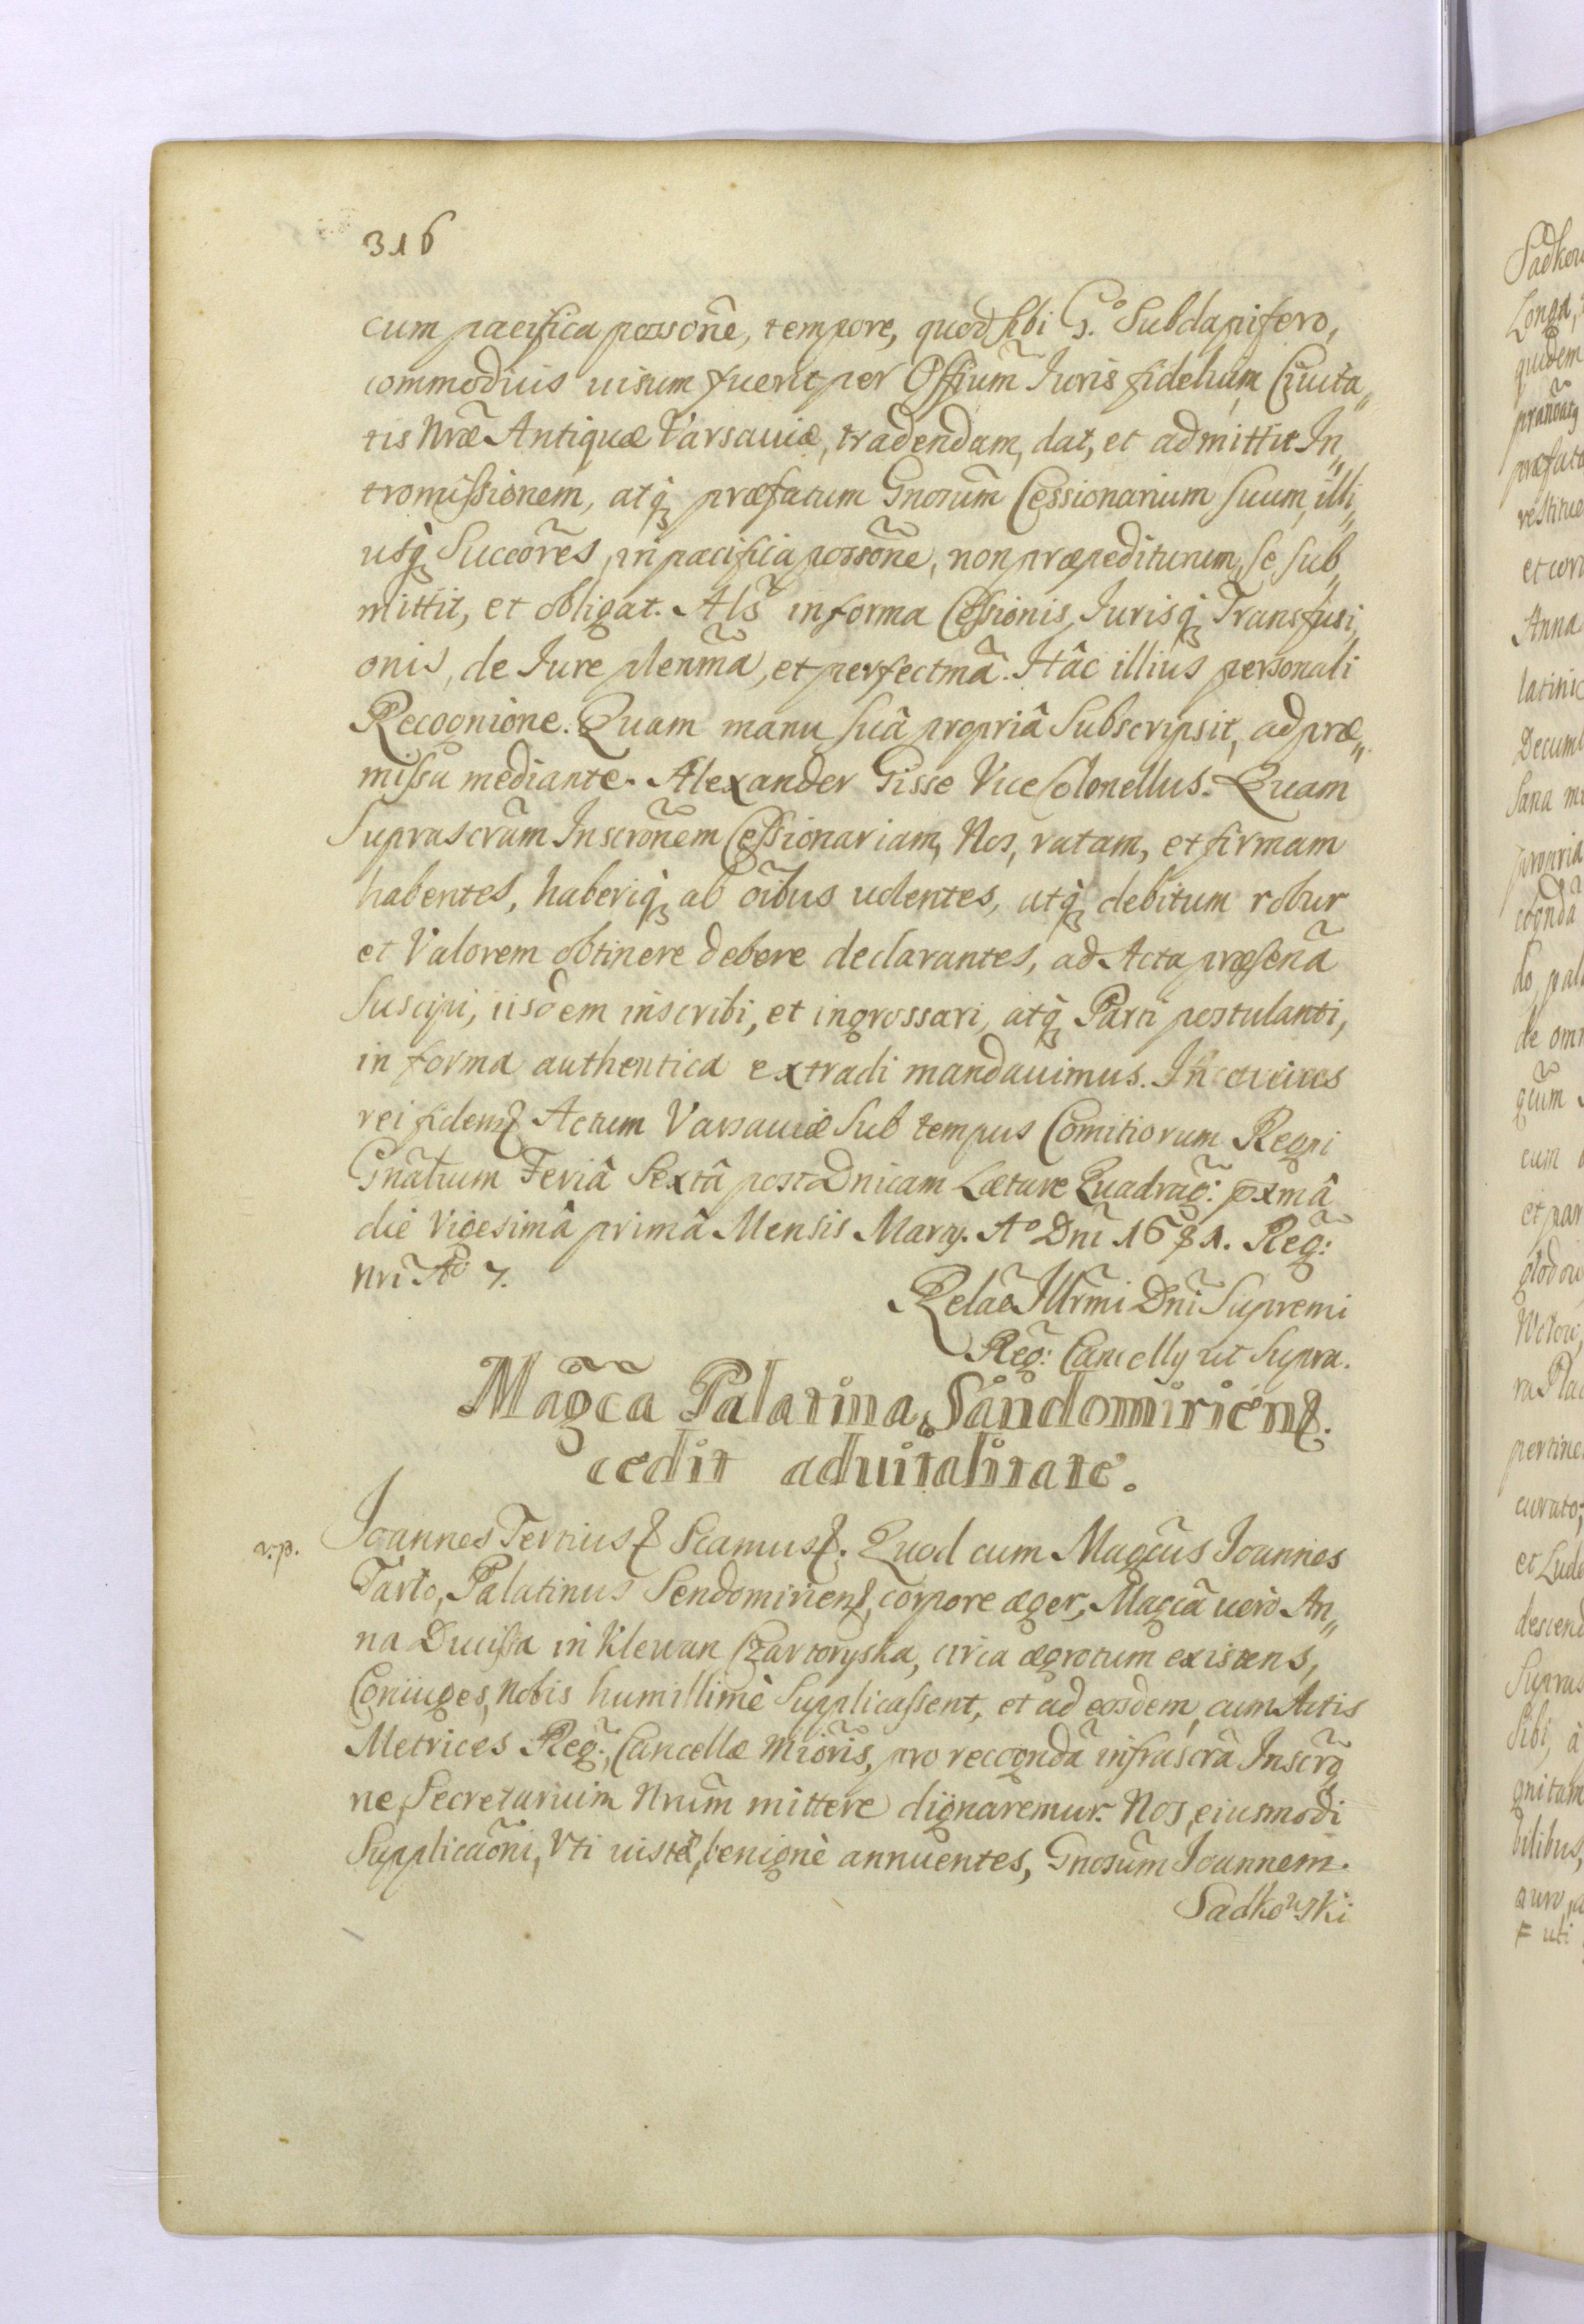 316
cum pacifica possõne, tempore, quod sibi G.º Subdapifero,
commodius uisum fuerit, per Offium̃ Iuris fidelium, Ciuita„
tis Nræ̃ Antiquæ Varsauiæ, tradendam, dat, et admittit In„
tromissionem, atq̃ præfatum Gnosum̃ Cessionarium suum, illi„
usq̃ Succõres, in pacifica possõne, non præpediturum, se sub„
mittit, et obligat. Als̃ in forma Cessionis, Iurisq̃ Transfusi„
onis, de Iure plenmã, et perfectmã. Hâc illius personali
Recognione. Quam manu suâ propriâ Subscripsit, ad præ„
missa mediante. Alexander Gisse Vice Colonellus. Quam
Suprascrãm Inscrõnem Cessionariam, Nos, ratam, et firmam
habentes, haberiq̃ ab oĩbus uolentes, atq̃ debitum robur
et Valorem obtinere debere declarantes, ad Acta præsenã
suscipi, iisdem inscribi, et ingrossari, atq̃ Parti postulanti,
in forma authentica extradi mandauimus. In cuius
rei fidem Actum Varsauiæ Sub tempus Comitiorum Regni
Gnãlium Feriâ Sextâ post Dnicam Lætare Quadrag̃: pxmâ
die Vigesimâ primâ Mensis Marty. Aº Dnĩ 1681. Reg̃:
Nrĩ Aº 7.
Relaõ Illr̃mi Dnĩ Supremi
Reg̃: Cancelly ut Supra.
Mag̃cã Palatina Sandomiriens.
cedit aduitalitate.
v.p.
Ioannes Tertius Scamus. Quod cum Magcũs Ioannes
Tarło, Palatinus Sendomiriens, corpore æger, Magcã uerò An„
na Ducissa in Klewan Czartoryska, circa ægrotum existens,
Coniuges, Nobis humillimè Supplicassent, et ad eosdem, cum Actis
Metrices Reg̃: Cancellæ Miõris, pro recogndã infrascrã Inscrõ
ne, Secretarium Nrum̃ mittere dignaremur. Nos, eiusmodi
Supplicaõni, Vti iustæ, benignè annuentes, Gnosum̃ Ioannem.
Sadkowski